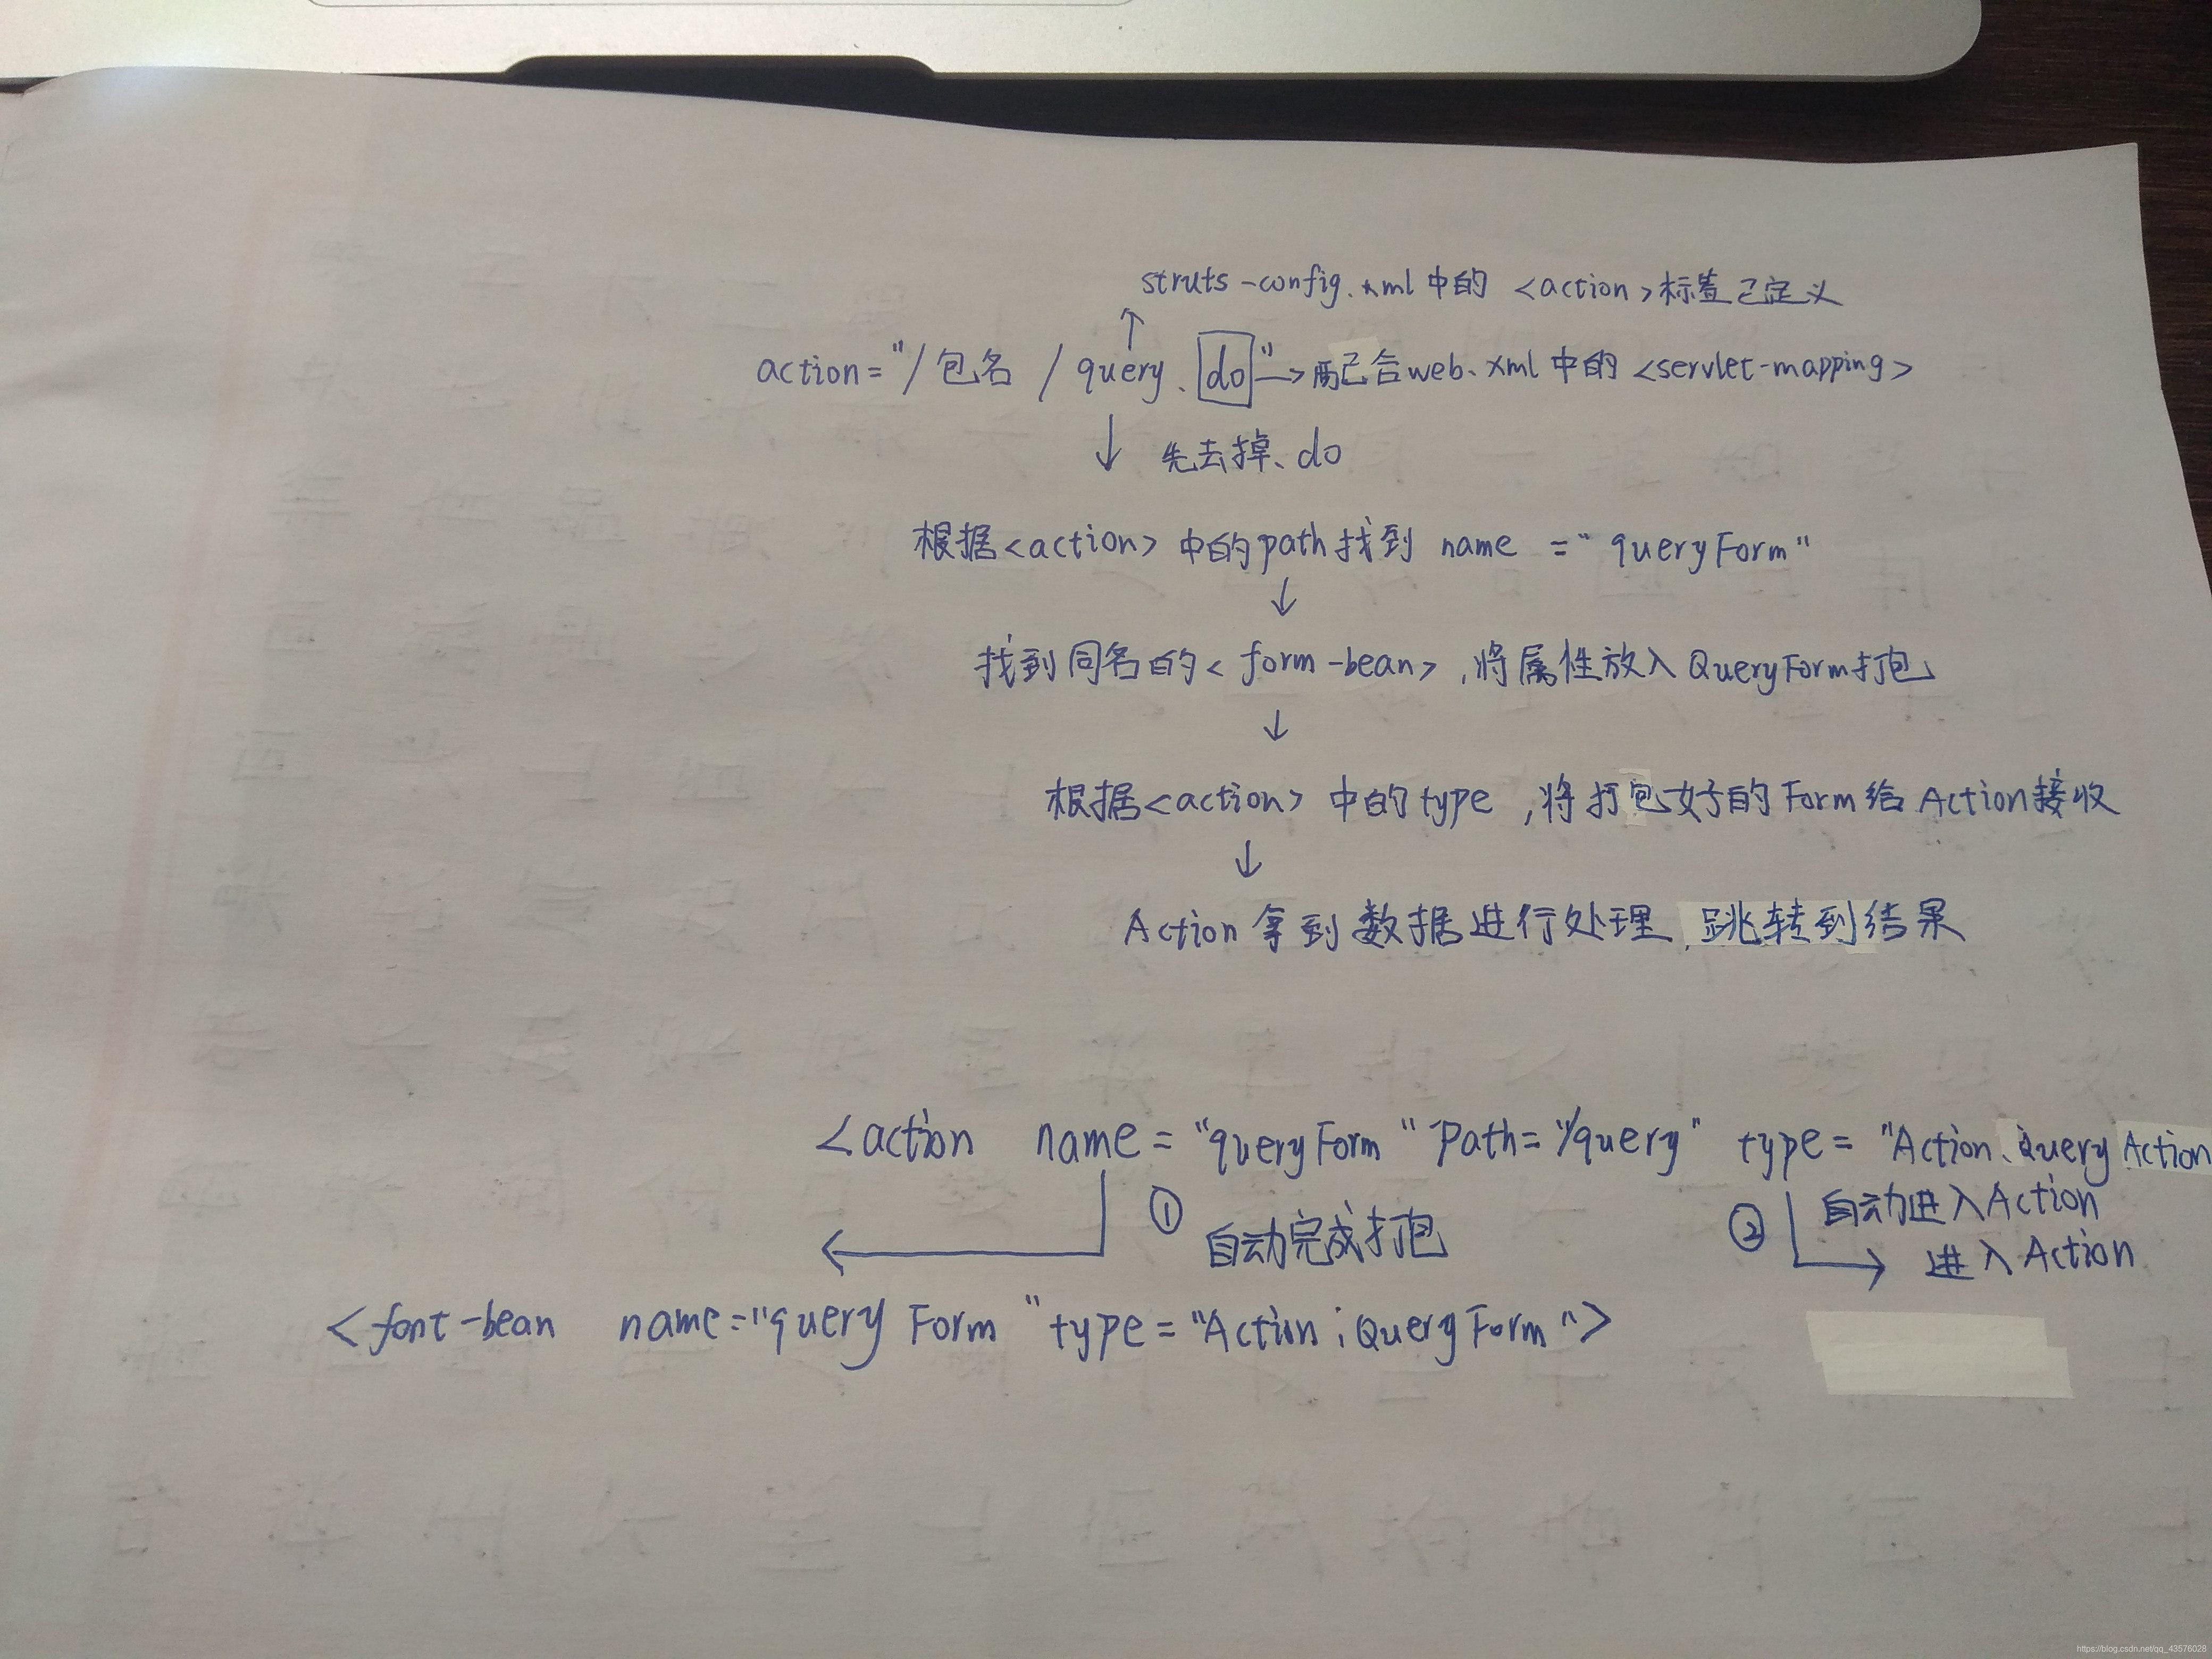 struts-config.xml中的 <action>标签已定义
action="/包名/query.do"→配合web.xml中的<servlet-mapping>
先去掉、do
根据<action>中的path找到 name ="queryForm"
找到同名的<form-bean>,将属性放入QueryForm打包
根据<action>中的type,将打包好的Form给Action接收
Action拿到数据进行处理,跳转到结果
<action name="queryForm" Path="/query" type="Action.QueryAction
① 自动完成打包
② 自动进入Action
进入Action
<font-bean name="queryForm" type="Action;QueryForm">
https://blog.csdn.net/qq_43576028